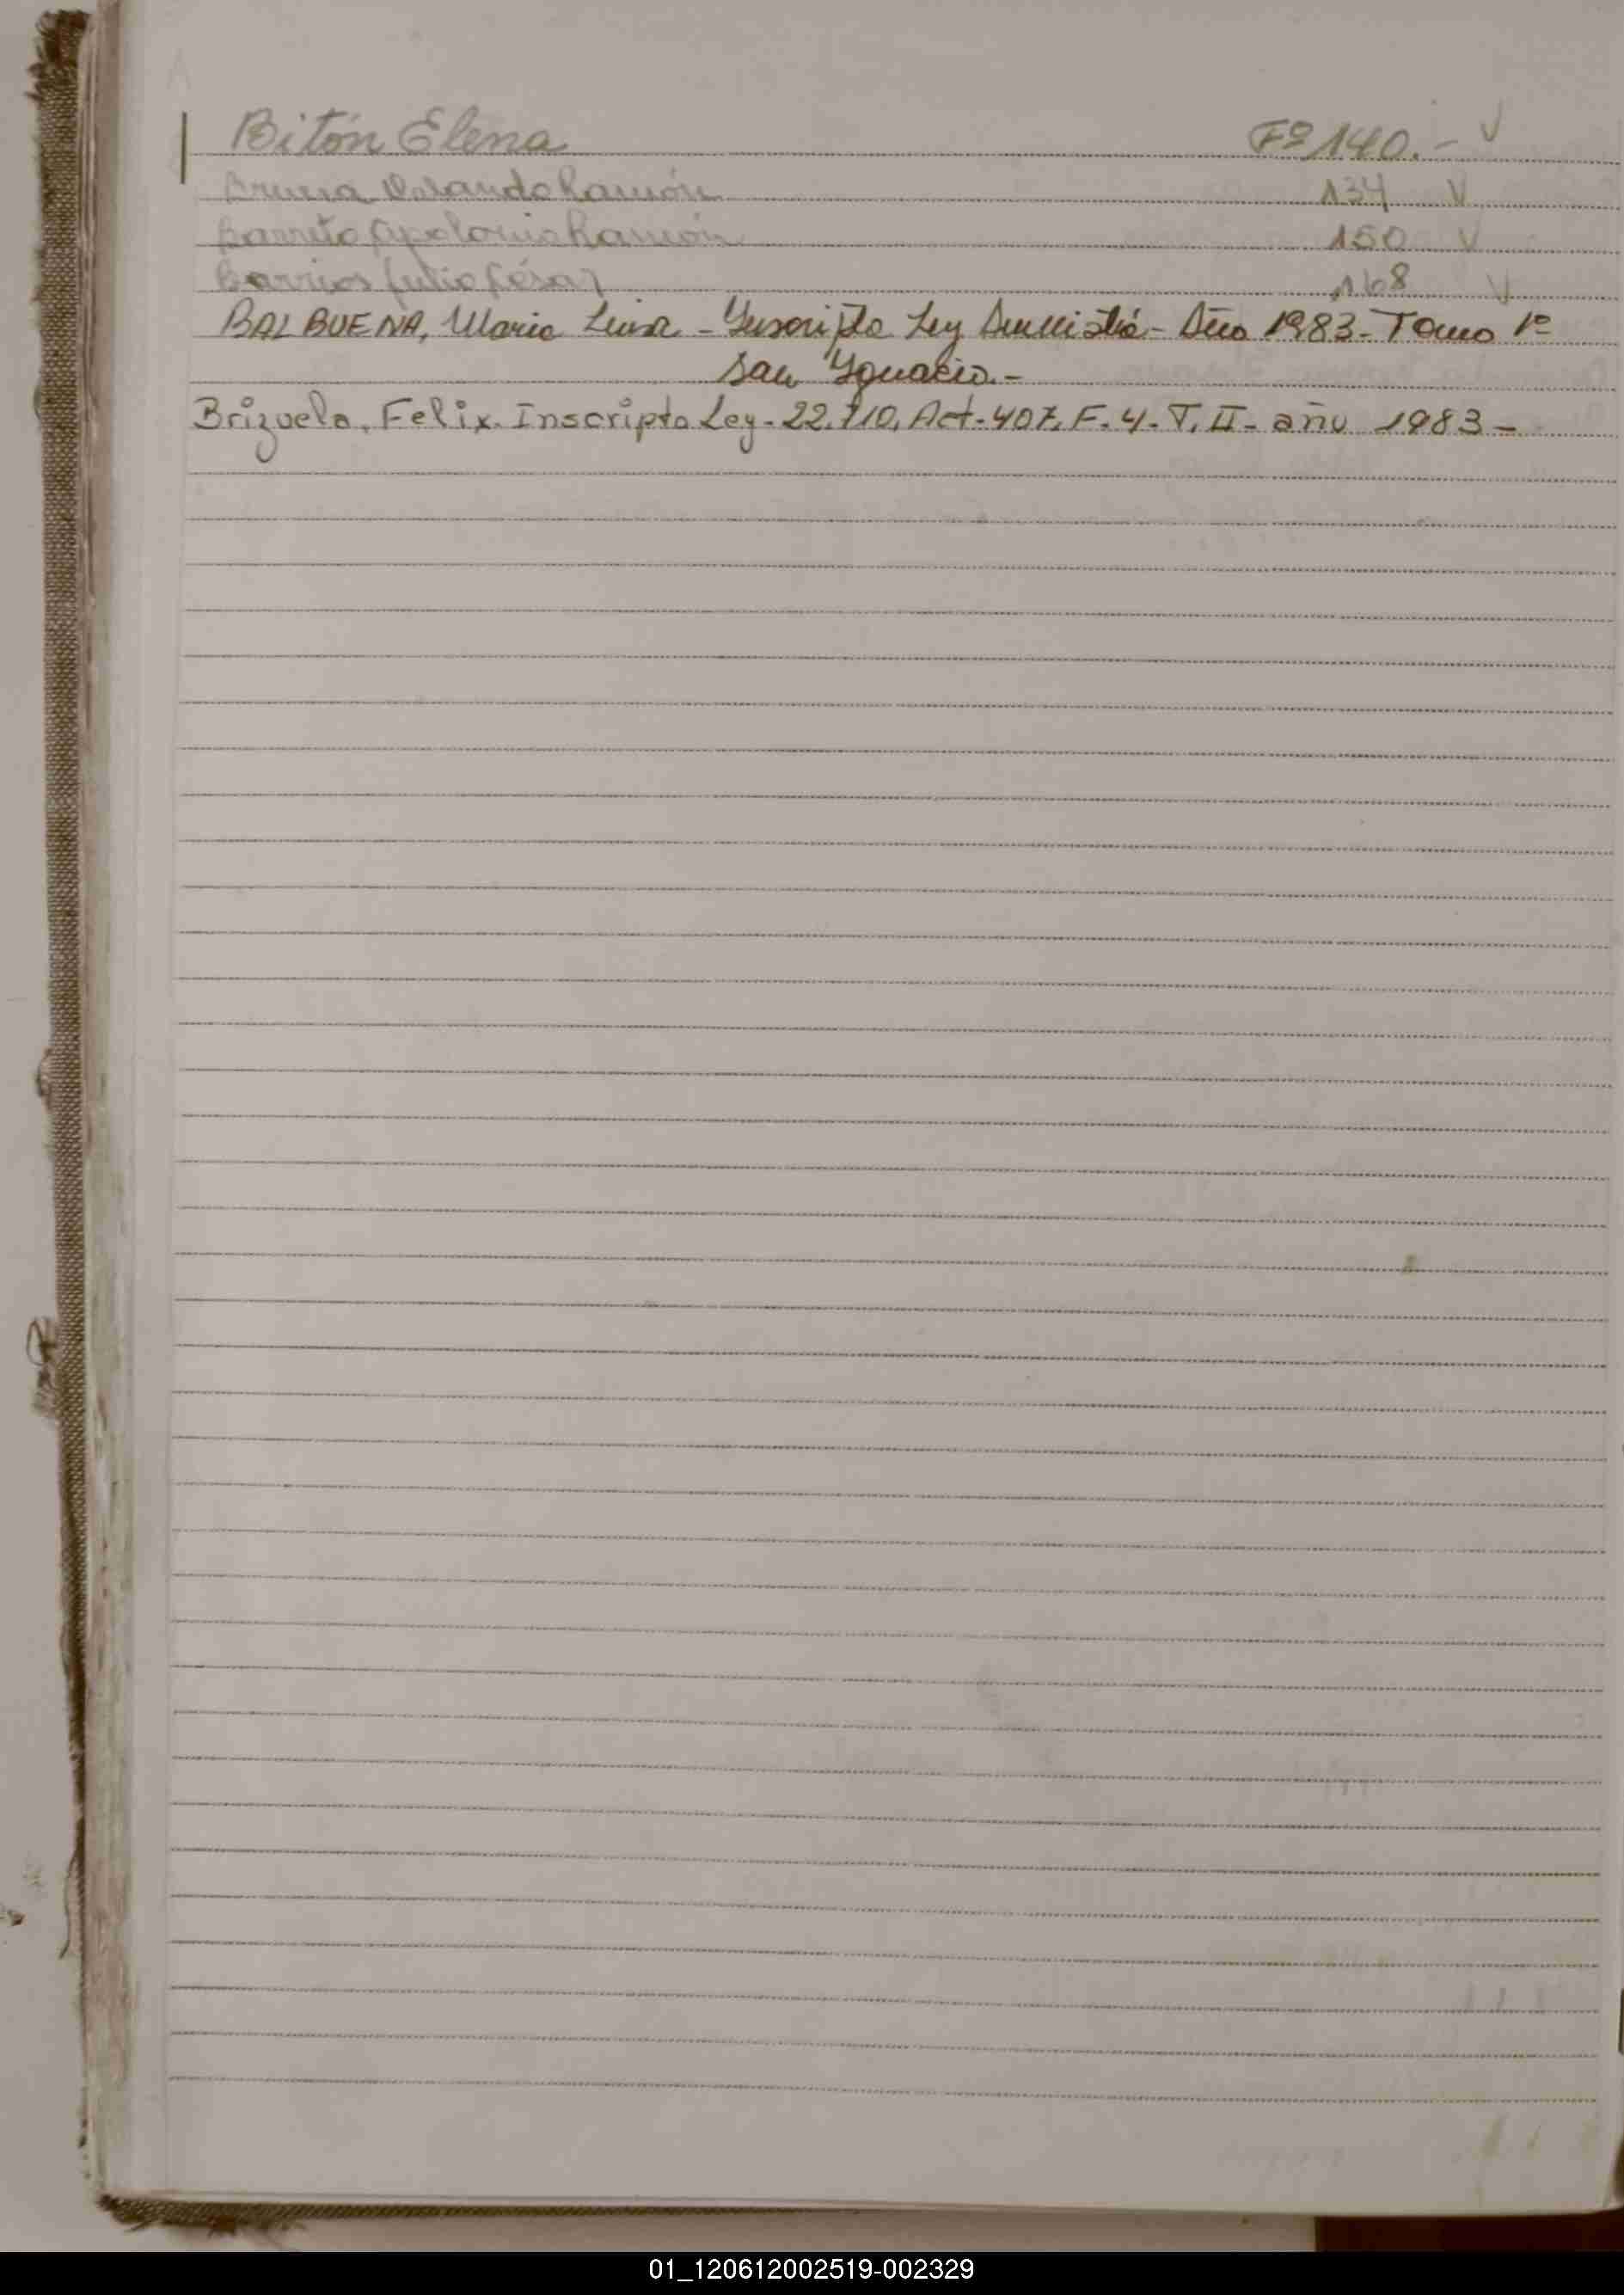 Bitón Elena Fº 140.- V
Orlando Ramón 134 V
Barreto Apolonio Ramón 150 V
Barrios Julio César 168 V
BALBUENA, Maria Luisa - Inscripta Ley Amnistiá - Año 1983 - Tomo 1º
San Ignacio.-
Brizuela, Felix. Inscripto Ley - 22.710, Act - 407, F. 4 - T. II - año 1983 -
01_120612002519-002329